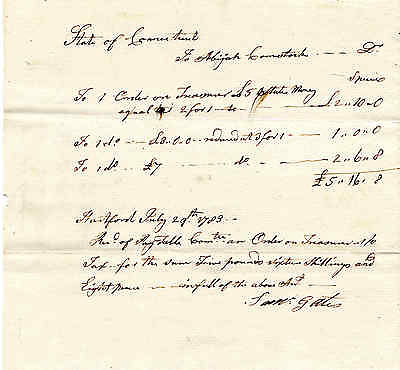 State of Connecticut
To Abijah Comstock — Dr
Specie
To 1 Order on Treasurer £5 State Money
equal to 2 for 1 — £2 „ 10 „ 0
To 1 do — £3 „ 0 „ 0 — reduced at 3 for 1 — 1 „ 0 „ 0
To 1 do — £7 — do — 2 „ 6 „ 8
£5 „ 16 „ 8
Hartford July 29th 1783 —
Recd of Committee an Order on Treasurer
Tax — for the sum Five pounds Sixteen Shillings and
Eight pence — in full of the above
Saml Gates